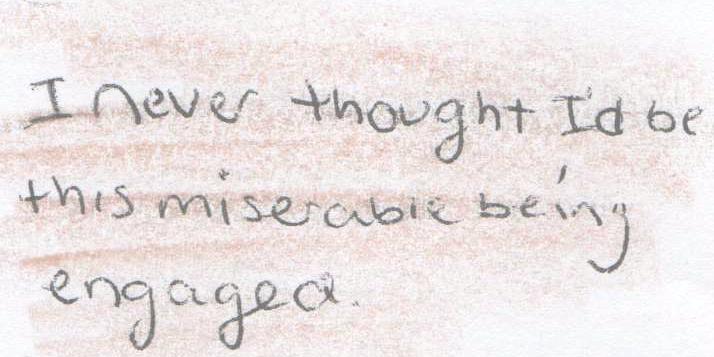 I never thought I'd be
this miserable being
engaged.